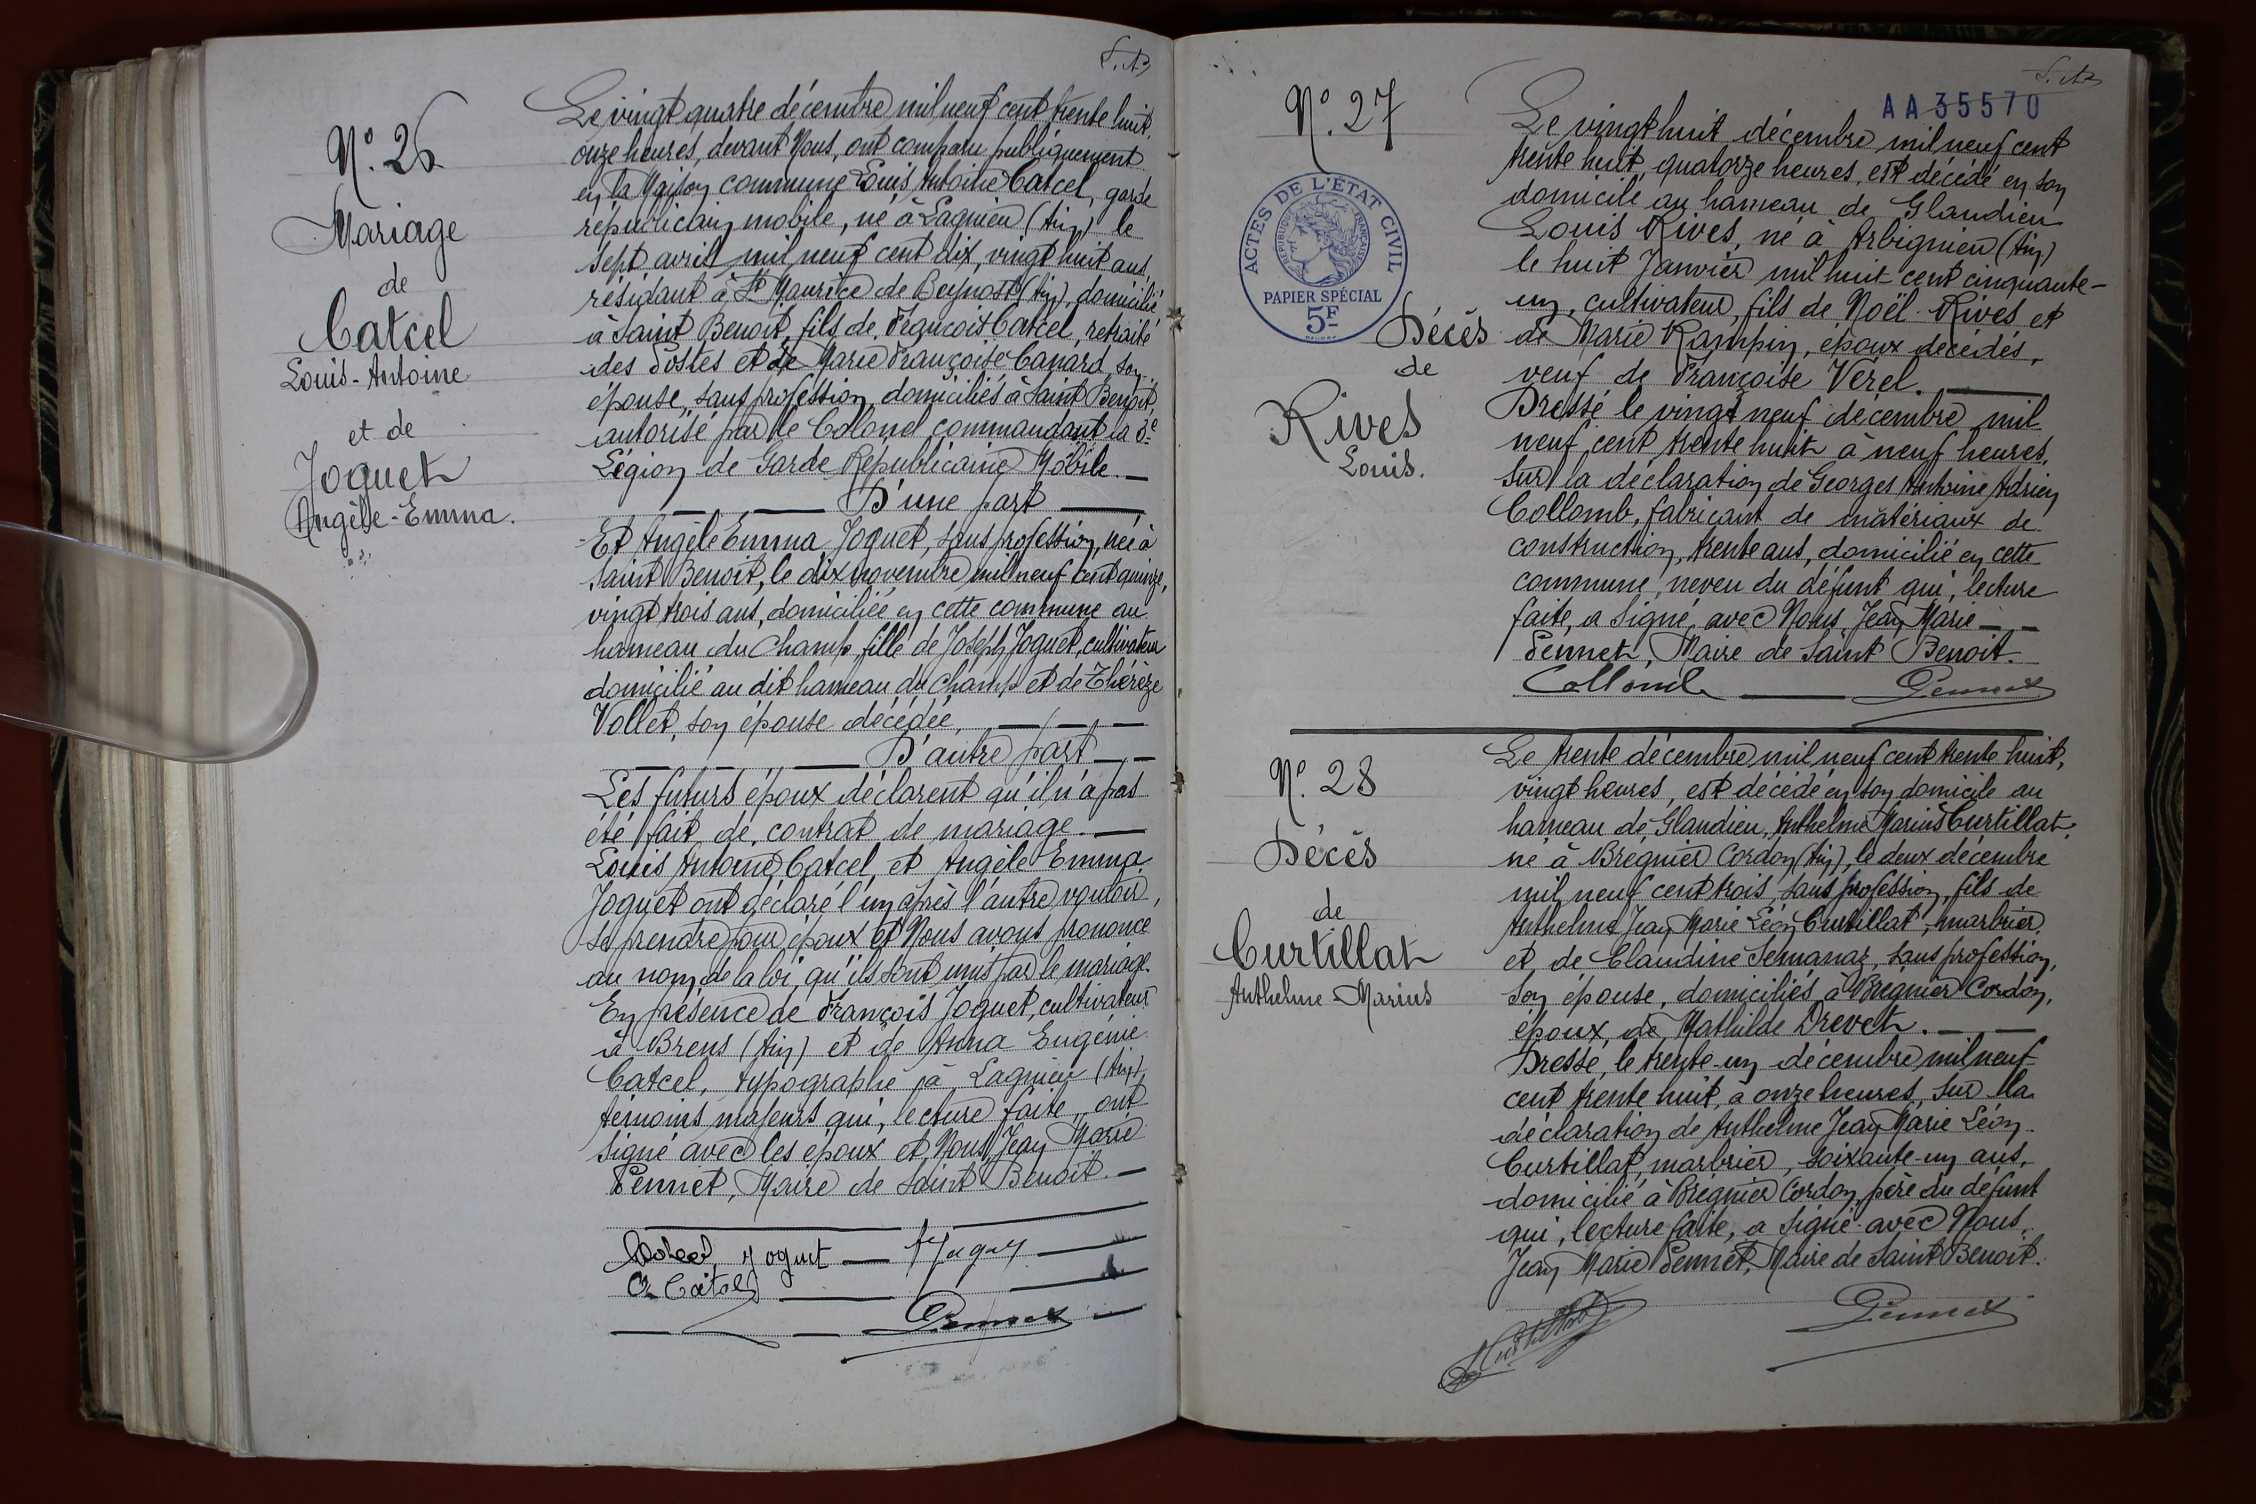 N°. 26
Mariage
de
Catcel
Louis-Antoine
et de
Joguet
Angèle-Emma.
Le vingt quatre décembre mil neuf cent trente huit,
onze heures, devant Nous, ont comparu publiquement
en la Maison commune Louis Antoine Catcel, garde
républicain mobile, né à Lagnieu (Ain) le
sept avril mil neuf cent dix, vingt huit ans,
résidant à St Maurice de Beynost (Ain), domicilié
à Saint Benoit, fils de François Catcel, retraité
des Postes et de Marie Françoise Canard, son
épouse, sans profession, domiciliés à Saint Benoit,
autorisé par le Colonel commandant la 3e
Légion de Garde Républicaine Mobile.
D'une part
Et Angèle Emma Joguet, sans profession, née à
Saint Benoit, le dix novembre mil neuf cent quinze,
vingt trois ans, domiciliée en cette commune au
hameau du Champ, fille de Joseph Joguet, cultivateur
domicilié au dit hameau du Champ et de Thérèze
Vollet, son épouse décédée,
D'autre part
Les futurs époux déclarent qu'il n'a pas
été fait de contrat de mariage.
Louis Antoine Catcel et Angèle Emma
Joguet ont déclaré l'un après l'autre vouloir
se prendre pour époux et Nous avons prononcé
au nom de la loi, qu'ils sont unis par le mariage.
En présence de François Joguet, cultivateur
à Brens (Ain) et de Anna Eugénie
Catcel, typographe à Lagnieu (Ain),
témoins majeurs qui, lecture faite, ont
signé avec les époux et Nous, Jean Marie
Pennet, Maire de Saint Benoit.
Catcel Joguet
Catcel
Pennet
AA 35570
N°. 27
ACTES DE L'ÉTAT CIVIL
RÉPUBLIQUE FRANÇAISE
PAPIER SPÉCIAL
5F
Décès
de
Rives
Louis.
Le vingt huit décembre mil neuf cent
trente huit, quatorze heures, est décédé en son
domicile au hameau de Glandieu
Louis Rives, né à Arbignieu (Ain)
le huit Janvier mil huit cent cinquante-
un, cultivateur, fils de Noël Rives et
de Marie Rampin, époux décédés,
veuf de Françoise Verel.
Dressé le vingt neuf décembre mil
neuf cent trente huit à neuf heures,
sur la déclaration de Georges Antoine Adrien
Collomb, fabricant de matériaux de
construction, trente ans, domicilié en cette
commune, neveu du défunt qui, lecture
faite, a signé avec Nous, Jean Marie
Pennet, Maire de Saint Benoit.
Collomb Pennet
N°. 28
Décès
de
Curtillat
Anthelme Marius
Le trente décembre mil neuf cent trente huit,
vingt heures, est décédé en son domicile au
hameau de Glandieu, Anthelme Marius Curtillat,
né à Brégnier Cordon (Ain), le deux décembre
mil neuf cent trois, sans profession, fils de
Anthelme Jean Marie Léon Curtillat, marbrier
et de Claudine Semanaz, sans profession,
son épouse, domiciliés à Brégnier Cordon,
époux de Mathilde Drevet.
Dressé, le trente-un décembre mil neuf
cent trente huit, à onze heures, sur la
déclaration de Anthelme Jean Marie Léon
Curtillat, marbrier, soixante-un ans,
domicilié à Brégnier Cordon, père du défunt
qui, lecture faite, a signé avec Nous,
Jean Marie Pennet, Maire de Saint Benoit.
Pennet